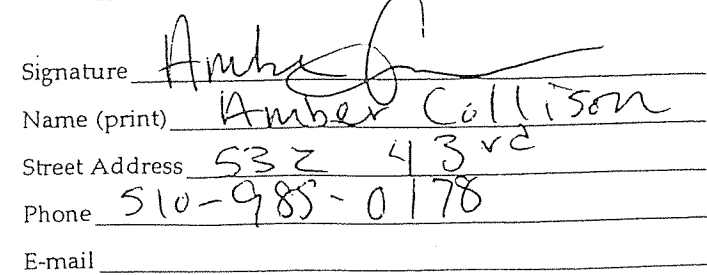 Signature Amber C
Name (print) Amber Collison
Street Address 532 43rd
Phone 510-985-0178
E-mail